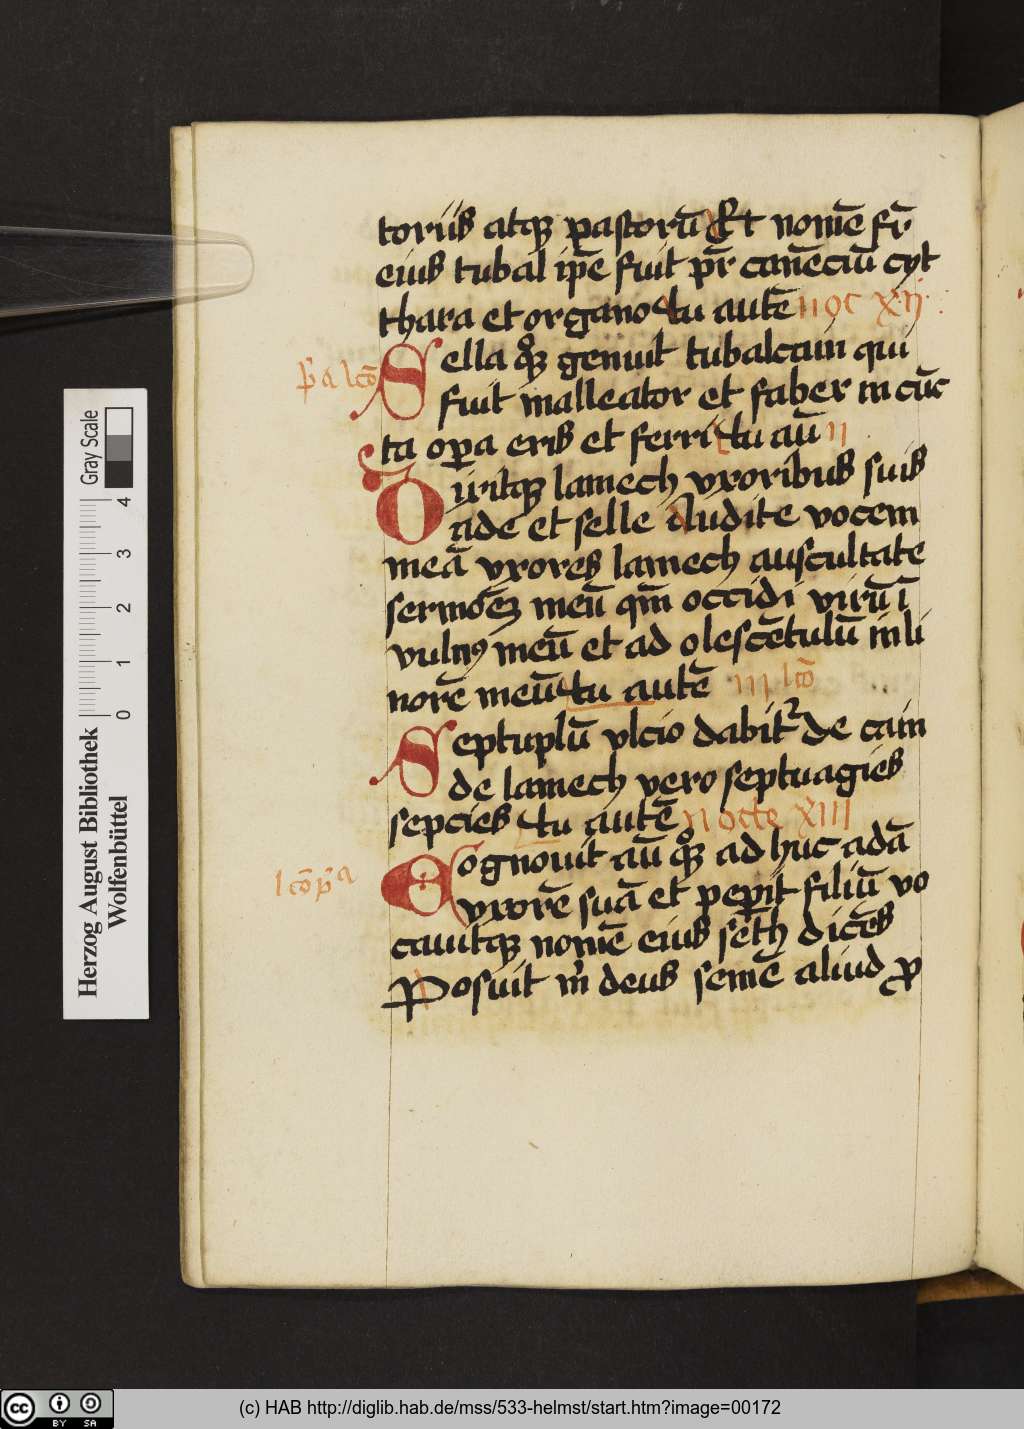 toriis atqꝫ pastorū Et nomē fr̄
eius tubal ip̄e fuit pr̄ canēciū cyt
thara et organo tu autē noc XII
p̄a lcō Sella qͦꝫ genuit tubalcain qui
fuit malleator et faber in cūc
ta oꝑa eris et ferri tu aū II
Dixitqꝫ lamech vxoribus suis
ade et selle Audite vocem
meā vxores lamech auscultate
sermōeꝫ meū qm̄ occidi virū ī
vulnꝰ meū et ad olescētulū in li
norē meū tu autē III lcō
Septuplū vlcio dabitᷣ de cain
de lamech vero septuagies
sepcies tu autē nocte XIII
lcō p̄a Cognouit aū qͦꝫ ad huc adā
vxorē suā et peꝑit filiū vo
cauitqꝫ nomē eius sēth dicēs
Posuit m̄ deus semē aliud ꝓ
Gray Scale
0 1 2 3 4
Herzog August Bibliothek
Wolfenbüttel
cc BY SA
(c) HAB http://diglib.hab.de/mss/533-helmst/start.htm?image=00172